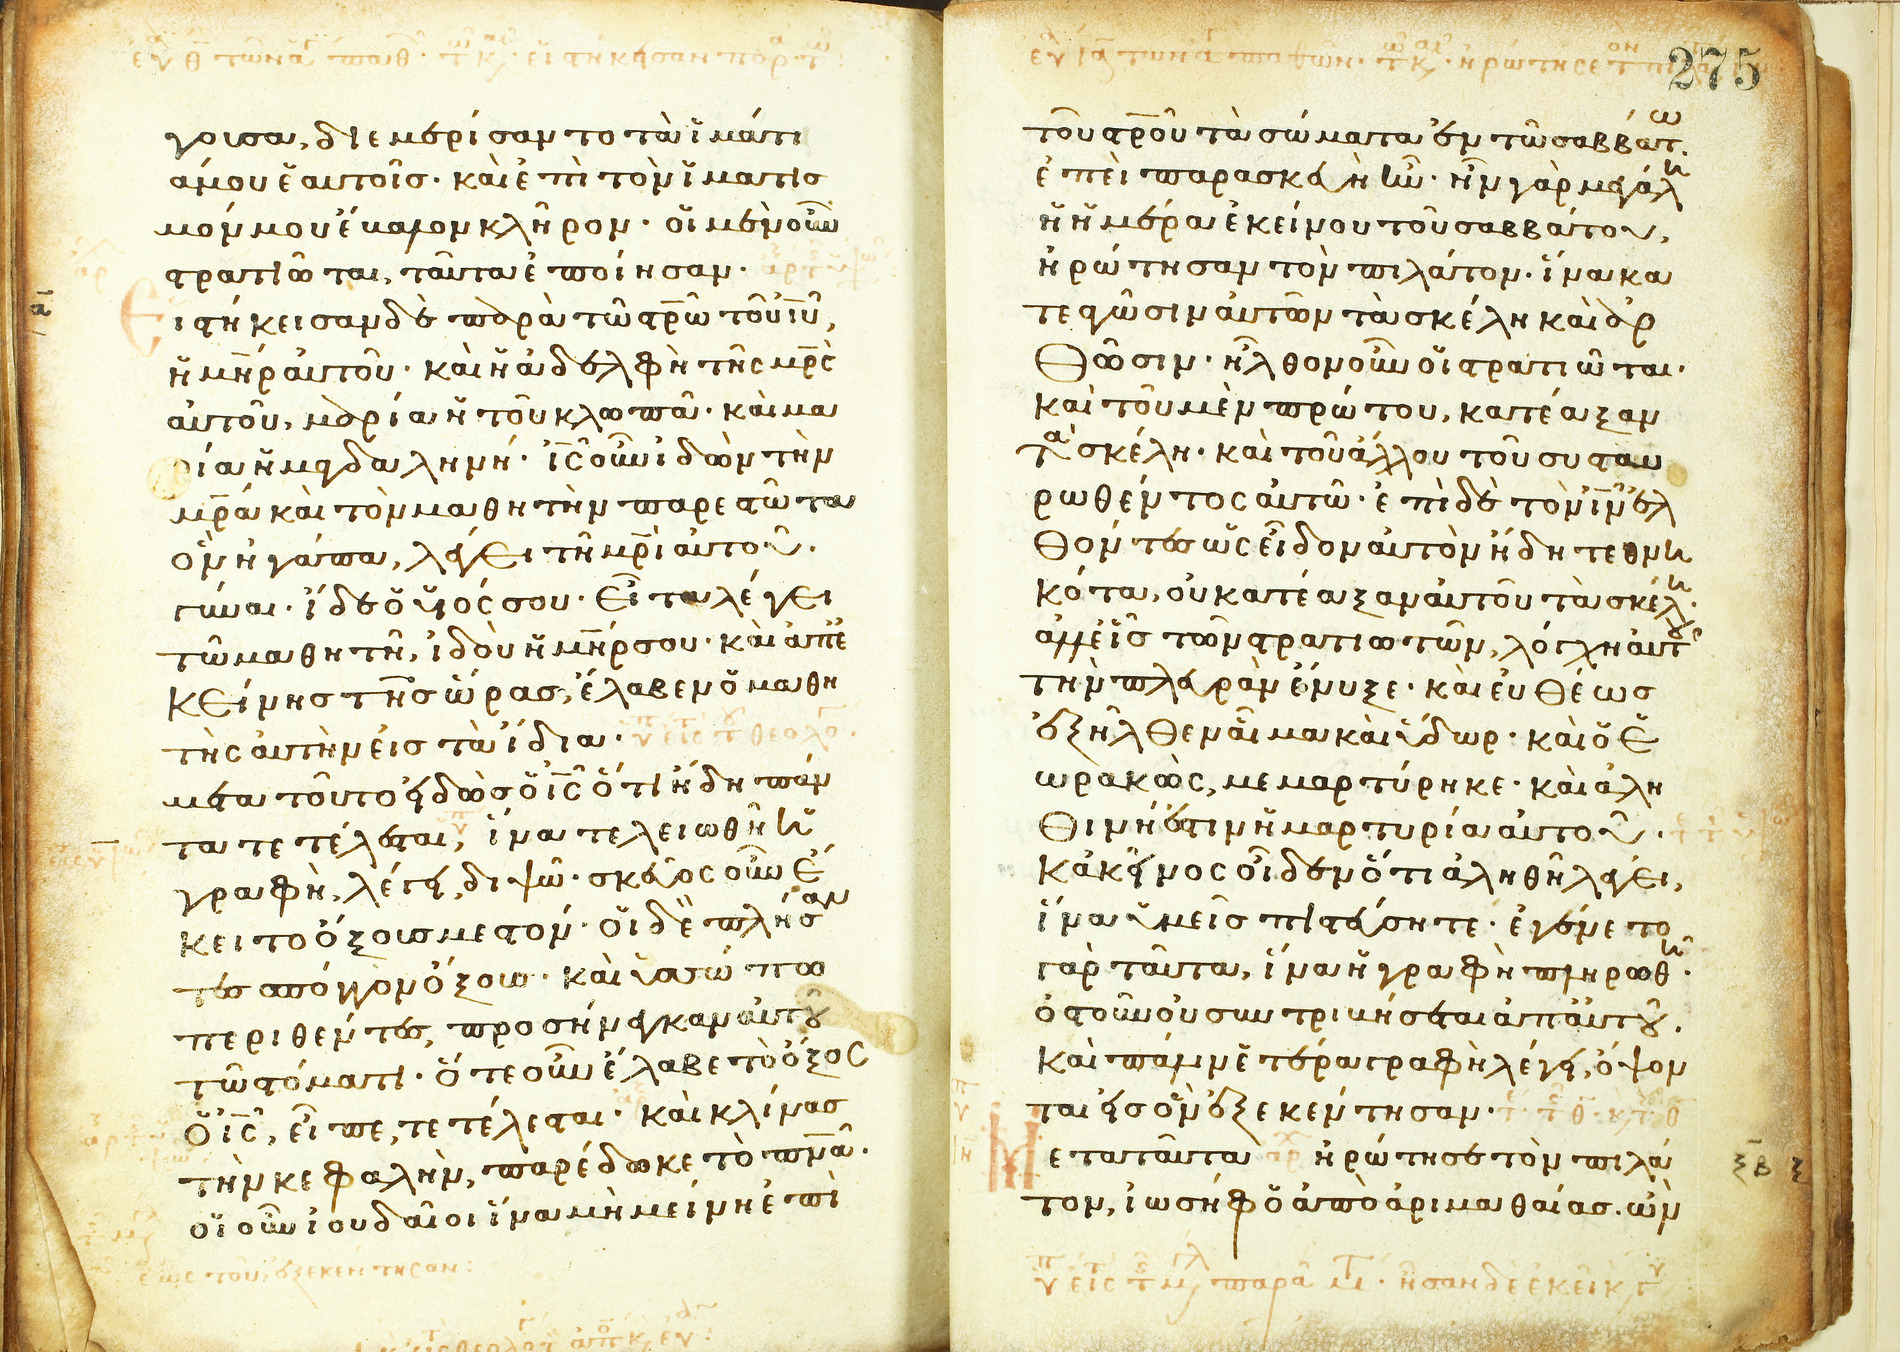 γουσα, διεμερίσαντο τὰ ἱμάτι
ά μου ἑαυτοῖς· καὶ ἐπὶ τὸν ἱματισ
μόν μου ἔβαλον κλῆρον· οἱ μὲν οὖν
στρατιῶται, ταῦτα ἐποίησαν·
Εἱστήκεισαν δὲ παρὰ τῶ στρῶ τοῦ ιυ,
ἡ μηρ αὐτοῦ· καὶ ἡ ἀδελφὴ τῆς μρς
αὐτοῦ, μαρία ἡ τοῦ κλωπᾶ· καὶ μα
ρία ἡ μαγδαληνή· ις οὖν ἰδὼν τὴν
μρα καὶ τὸν μαθητὴν παρεστῶτα
ὃν ἠγάπα, λέγει τῆ μρι αὐτοῦ.
γύναι· ἴδε ὁ υἱός σου· εἶτα λέγει
τῶ μαθητῆ, ἰδοὺ ἡ μηρ σου· καὶ ἀπ ἐ
κείνης τῆς ὥρας, ἔλαβεν ὁ μαθη
τὴς αὐτὴν εἰς τὰ ἴδια·
μετα τοῦτο εἰδὼς ὁ ις ὅτι ἤδη πάν
τα τετέλεσται, ἵνα τελειωθῆ ἡ
γραφὴ, λέγει, διψῶ· σκεῦος οὖν ἔ
κειτο ὄξους μεστόν· οἱ δὲ πλήσαν
τες σπόγγον ὄξους· καὶ ὑσσώπω
περιθέντες, προσήνεγκαν αὐτοῦ
τῶ στόματι· ὅτε οὖν ἔλαβε τὸ ὄξος
ὁ ις, εἶπε, τετέλεσται· καὶ κλίνας
τὴν κεφαλὴν, παρέδωκε τὸ πνα·
οἱ οὖν ἰουδαῖοι ἵνα μὴ μείνη ἐπὶ
ἕως τοῦ, ἐξεκέντησαν:
275
τοῦ στροῦ τὰ σώματα ἐν τῶ σαββάτω.
ἐπεὶ παρασκευὴ ἦν· ἦν γὰρ μεγάλη
ἡ ἡμέρα ἐκείνου τοῦ σαββάτου,
ἠρώτησαν τὸν πιλάτον· ἵνα κα
τεαγῶσιν αὐτῶν τὰ σκέλη καὶ ἀρ
θῶσιν· ἦλθον οὖν οἱ στρατιῶται·
καὶ τοῦ μὲν πρώτου, κατέαξαν
τὰ σκέλη· καὶ τοῦ ἄλλου τοῦ συσταυ
ρωθέντος αὐτῶ· ἐπὶ δὲ τὸν ιν ἐλ
θόντες ὡς εἶδον αὐτὸν ἤδη τεθνη
κότα, οὐ κατέαξαν αὐτοῦ τὰ σκέλη·
ἀλλ εἷς τῶν στρατιωτῶν, λόγχη αὐτοῦ
τὴν πλευρὰν ἔνυξε· καὶ εὐθέως
ἐξῆλθεν αἷμα καὶ ὕδωρ· καὶ ὁ ἑ
ωρακὼς, μεμαρτύρηκε· καὶ ἀλη
θινή ἐστιν ἡ μαρτυρία αὐτοῦ.
κἀκεῖνος οἶδεν ὅτι ἀληθῆ λέγει,
ἵνα ὑμεῖς πιστεύσητε· ἐγένετο
γὰρ ταῦτα, ἵνα ἡ γραφὴ πληρωθῆ·
ὀστοῦν οὐ συντριβήσεται ἀπ αὐτοῦ.
καὶ πάλιν ἑτέρα γραφὴ λέγει, ὄψον
ται εἰς ὃν ἐξεκέντησαν·
Μετα ταῦτα ἠρώτησε τὸν πιλά
τον, ἰωσὴφ ὁ ἀπὸ ἀριμαθαίας. ὢν